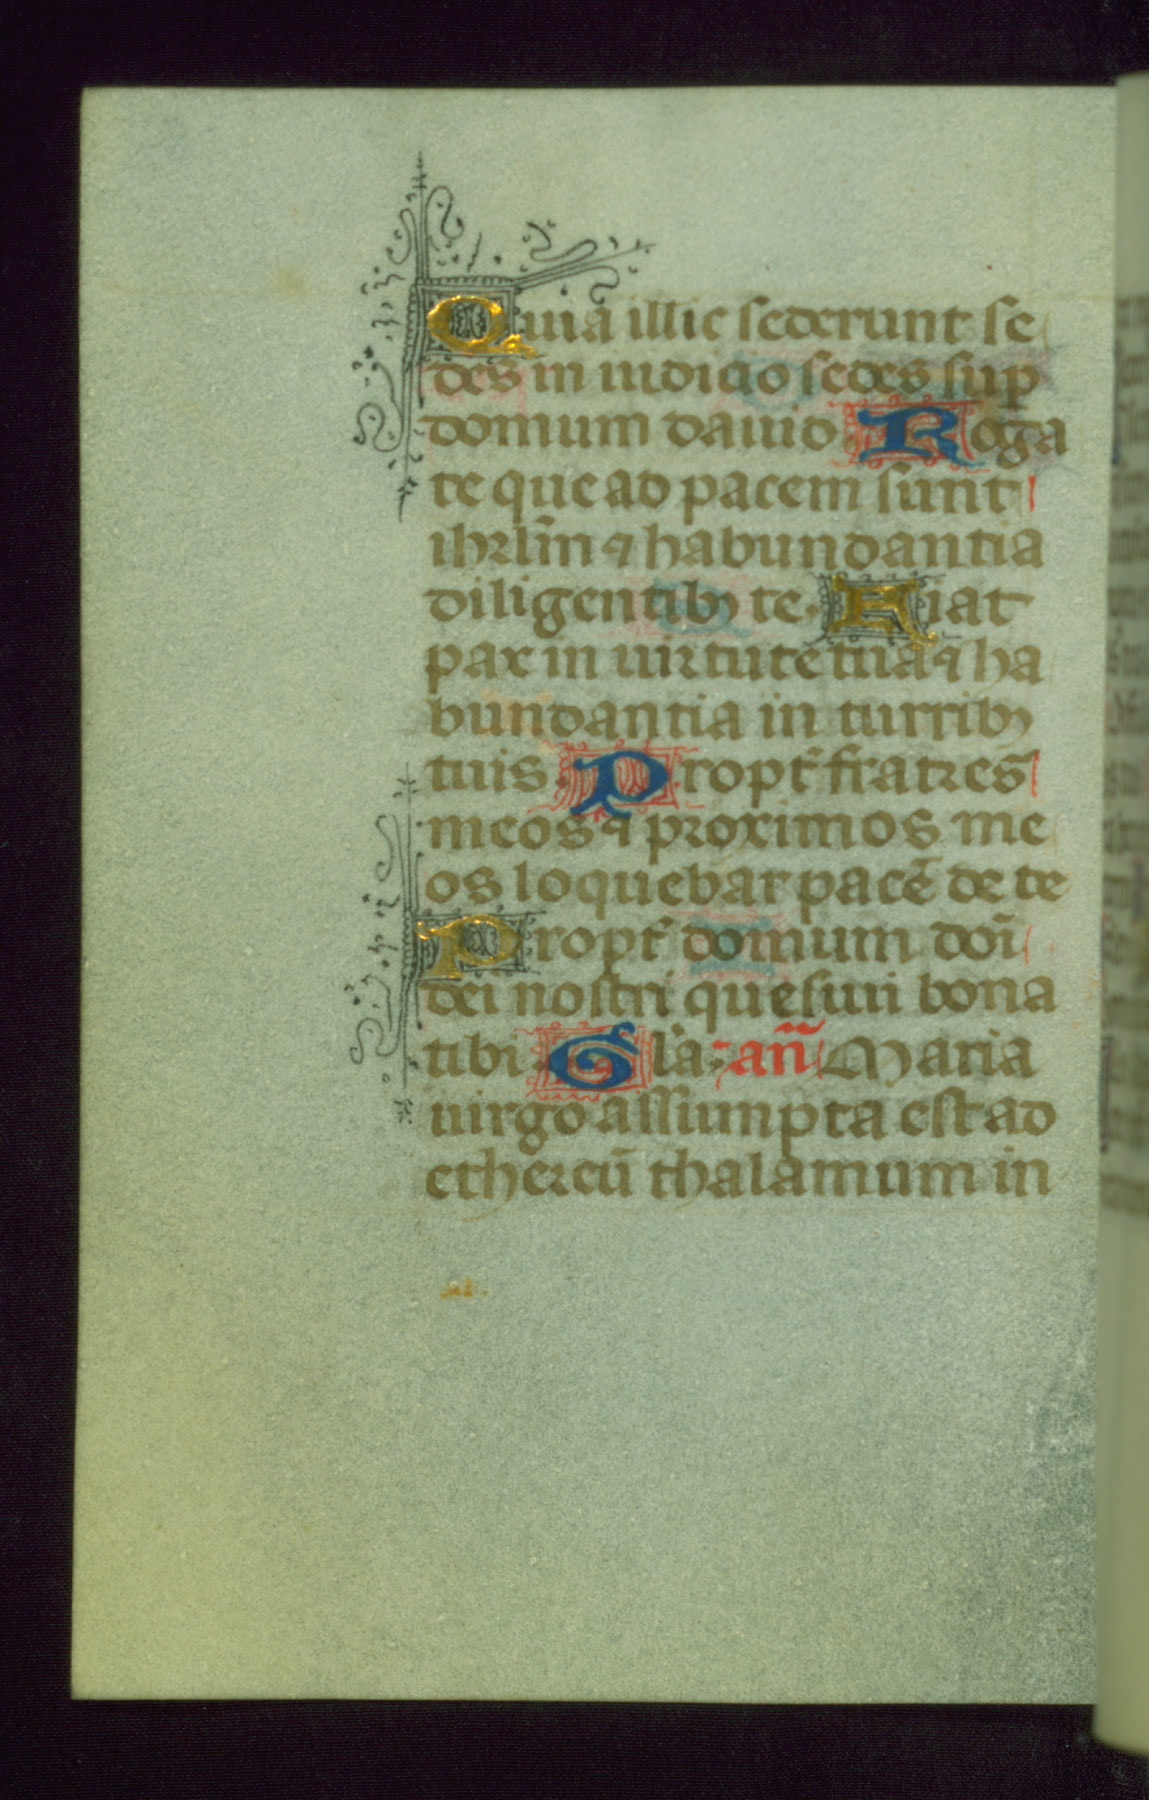 Quia illic sederunt se
des in iudicio sedes sup
domum dauid Roga
te que ad pacem sunt
ihrl̄m ⁊ habundantia
diligentibꝫ te. Fiat
pax in uirtute tua ⁊ ha
bundantia in turribꝫ
tuis. Propt̄ fratres
meos ⁊ proximos me
os loquebar pacē de te
Propt̄ domum dn̄i
dei nostri quesiui bona
tibi Gl̄a. an̄ Maria
uirgo assumpta est ad
ethereū thalamum in